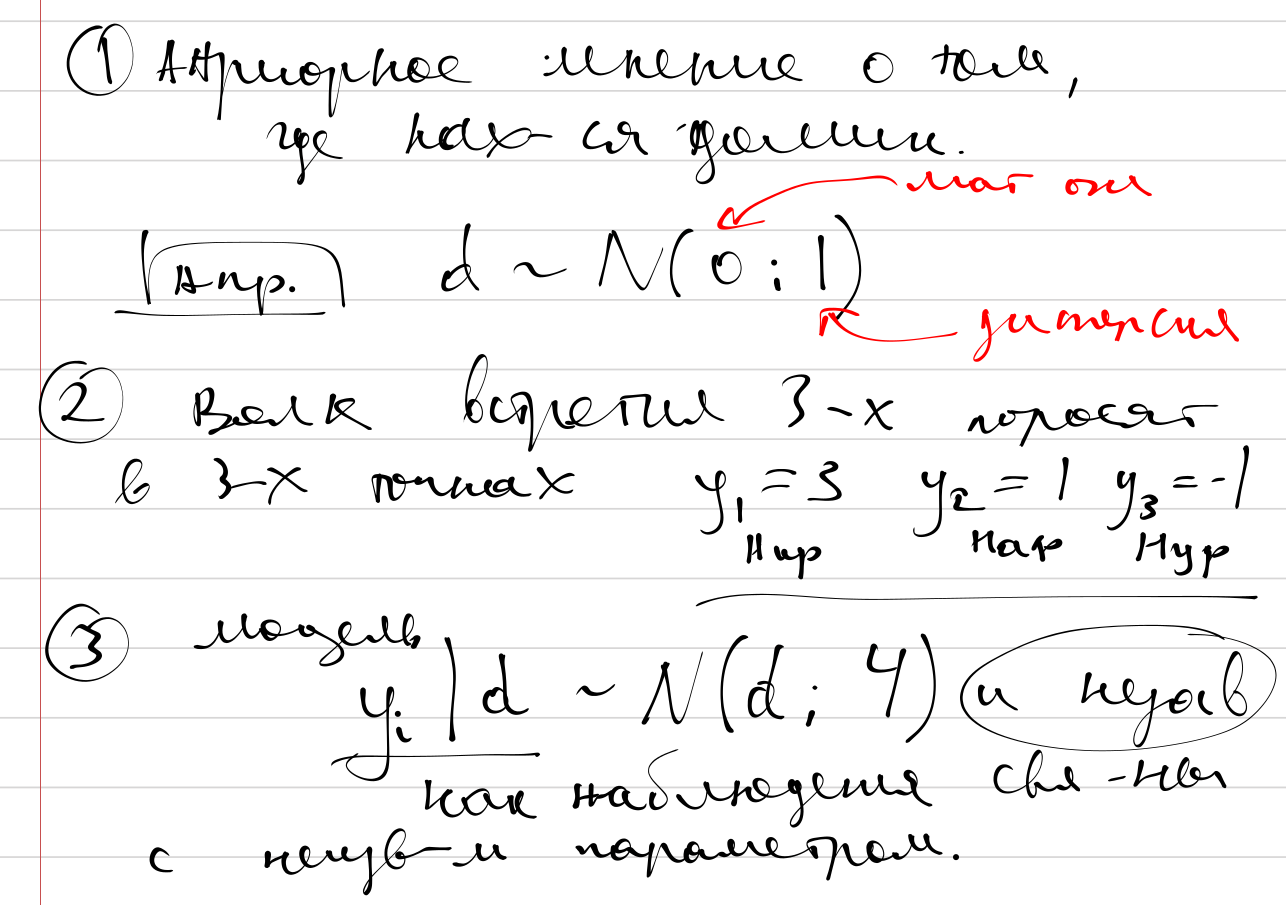 ① Априорное мнение о том,
где нах-ся домик.
мат ож
Апр. d ~ N(0; 1)
дисперсия
② Волк встретил 3-х поросят
в 3-х точках y₁ = 3 y₂ = 1 y₃ = -1
Ниф Наф Нуф
③ модель
yᵢ | d ~ N(d; 4) и незав
как наблюдения свя-ны
с неизв-м параметром.